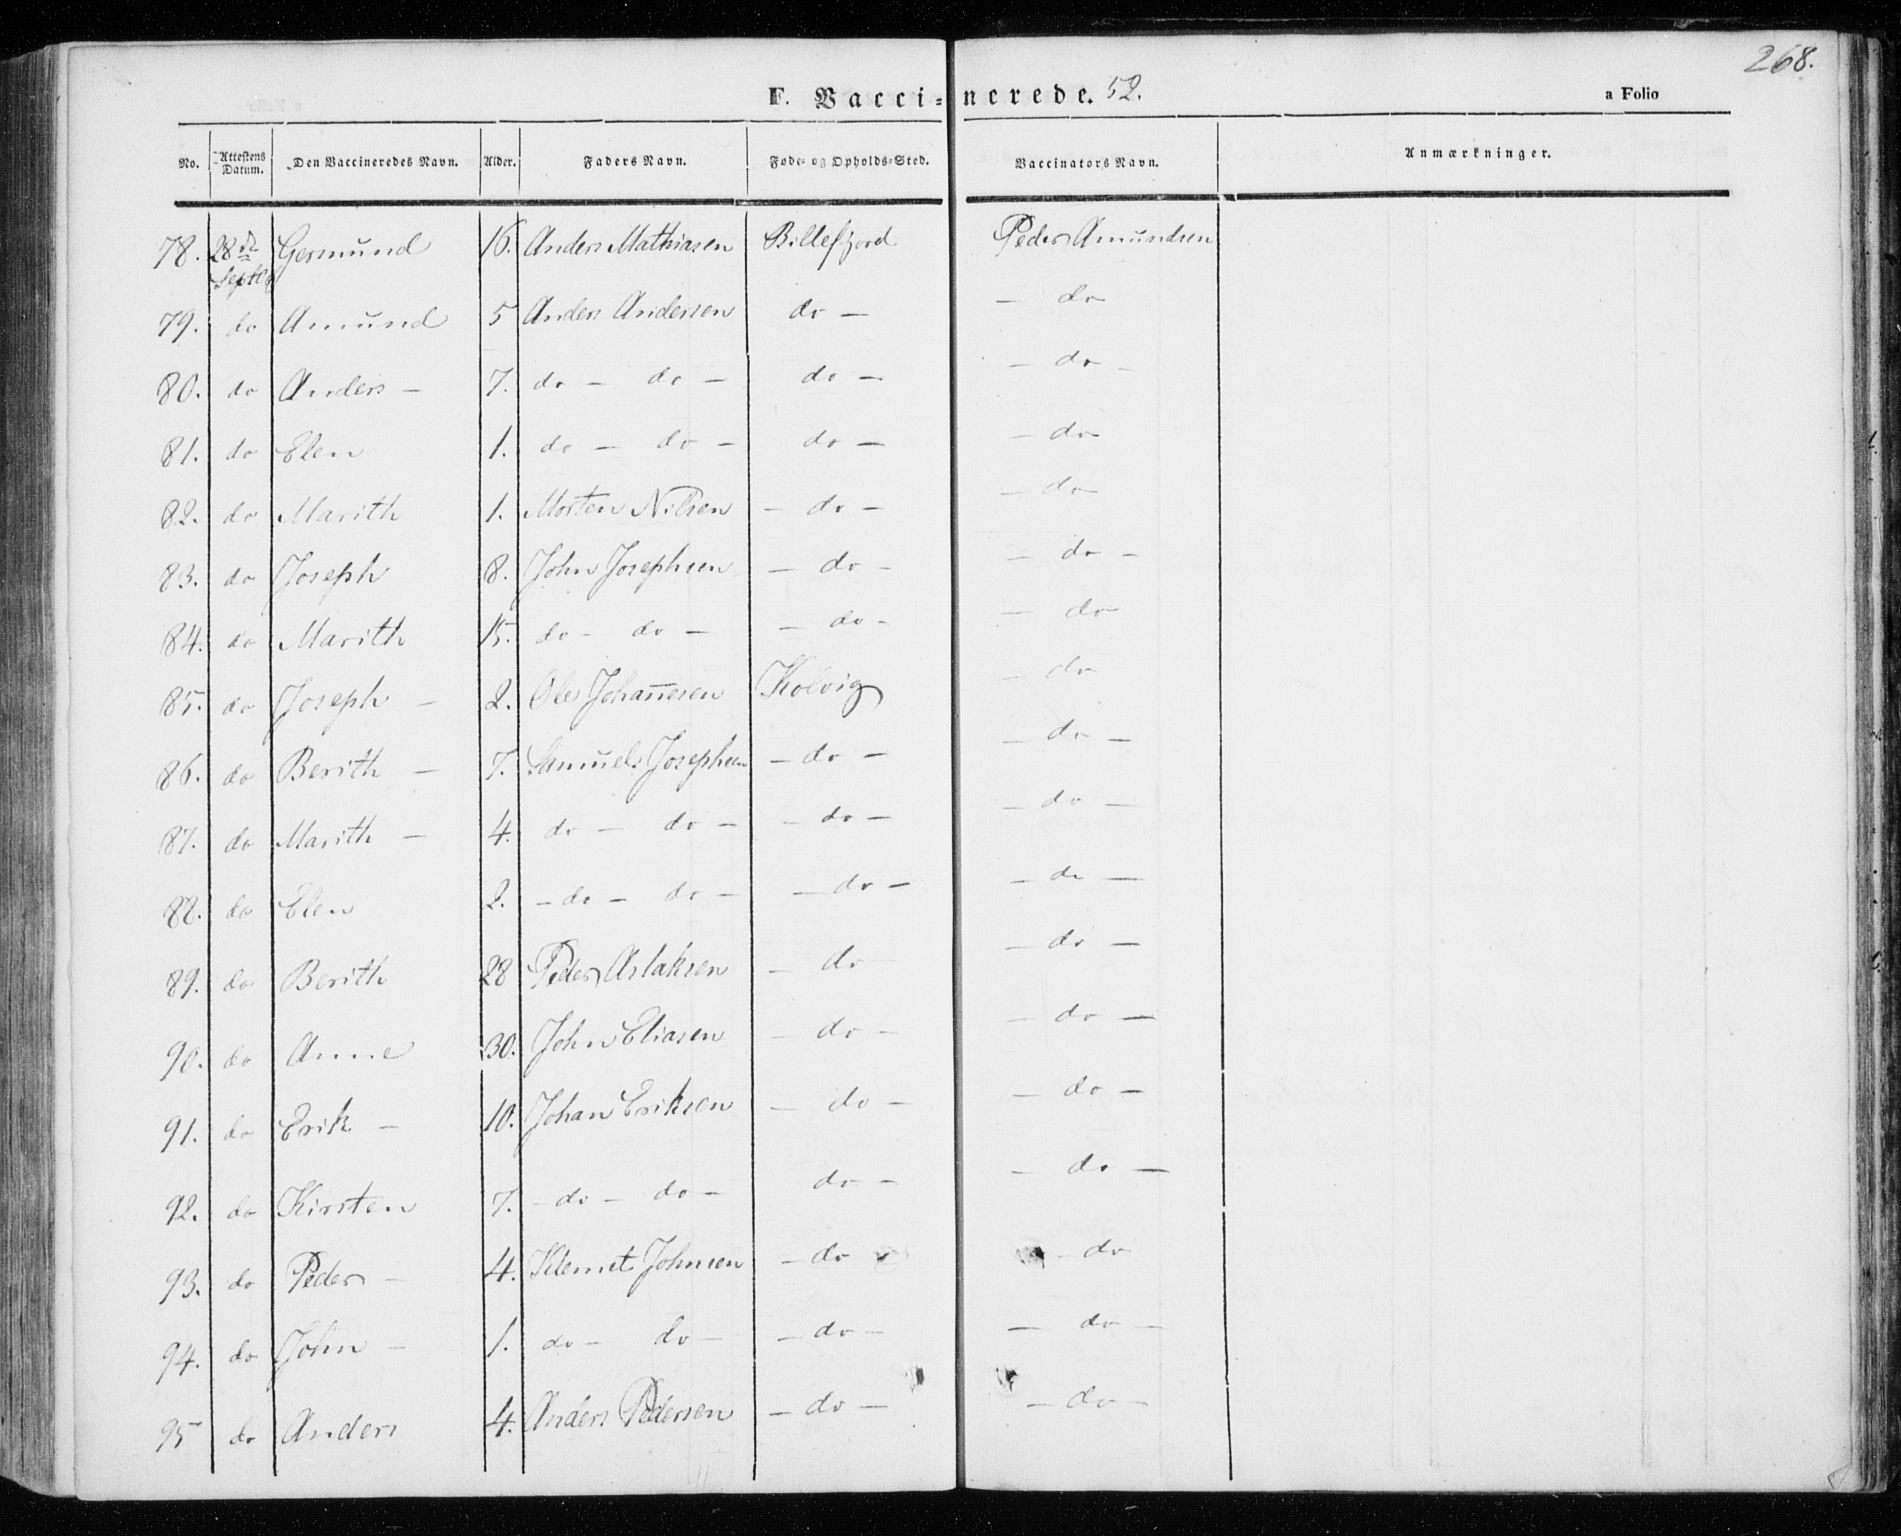 268.
F. Vacci=nerede. 52.
a Folio
No. Attestens Datum. Den Vaccineredes Navn. Alder. Faders Navn. Føde- og Opholds-Sted. Vaccinators Navn. Anmærkninger.
78. 28de Septbr Germund 16. Anders Mathiasen Billefjord Peder Amundsen
79. do Amund 5 Anders Andersen do — — do
80. do Anders — 7. do — do — do — — do —
81. do Elen 1. do — do — do — — do
82. do Marith 1. Morten Nilsen — do — — do
83. do Joseph 8. John Josephsen — do — — do —
84. do Marith 15. do — do — — do — — do
85. do Joseph — 2. Ole Johannesen Kolvig — do
86. do Berith — 7. Samuel Josephsen — do — — do —
87. do Marith — 4. do — do — — do — — do —
88. do Elen 2. — do — do — — do — — do —
89. do Berith 28 Peder Aslaksen — do — do —
90. do Anne 30. John Eliasen — do — — do —
91. do Erik — 10. Johan Eriksen — do — — do —
92. do Kirsten 7. — do — do — do — — do —
93. do Peder — 4. Klemet Johnsen — do — do
94. do John — 1. do — do — — do — — do —
95 do Anders 4. Anders Pedersen — do — — do —